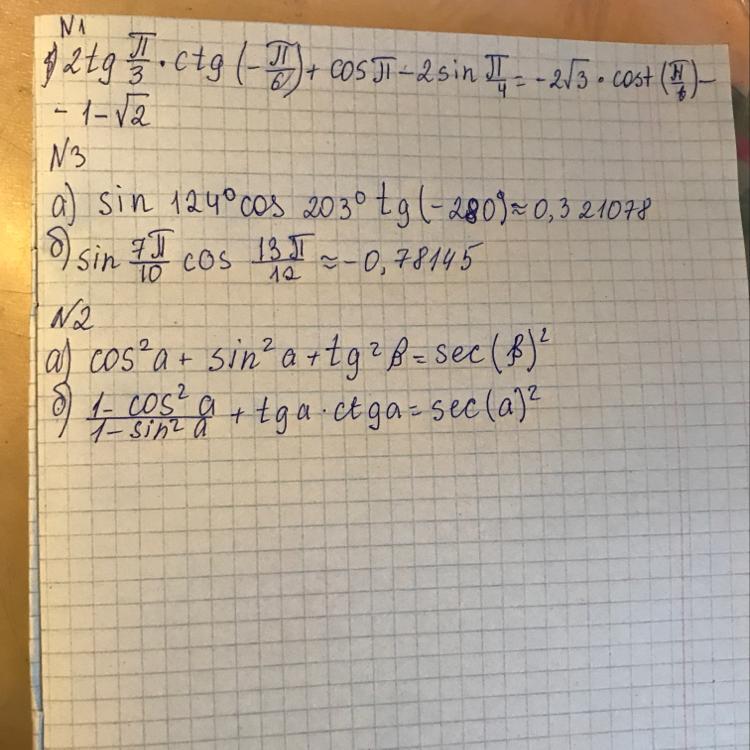 N1
1) 2tg π/3 · ctg (-π/6) + cos π - 2 sin π/4 = -2√3 · cost (π/6) -
- 1 - √2
N3
а) sin 124° cos 203° tg (-280°) ≈ 0,321078
б) sin 7π/10 cos 13π/12 ≈ -0,78145
N2
а) cos²a + sin²a + tg²β = sec(β)²
б) 1 - cos²a / 1 - sin²a + tga · ctga = sec(a)²